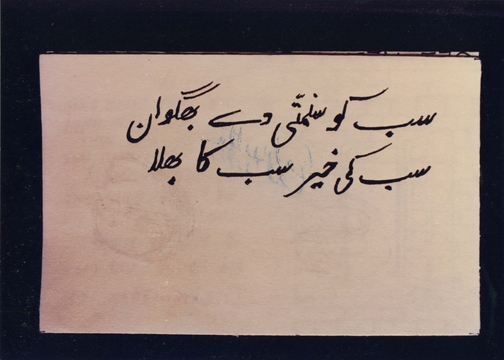 سب کو سنمتی دے بھگوان
سب کی خیر سب کا بھلا